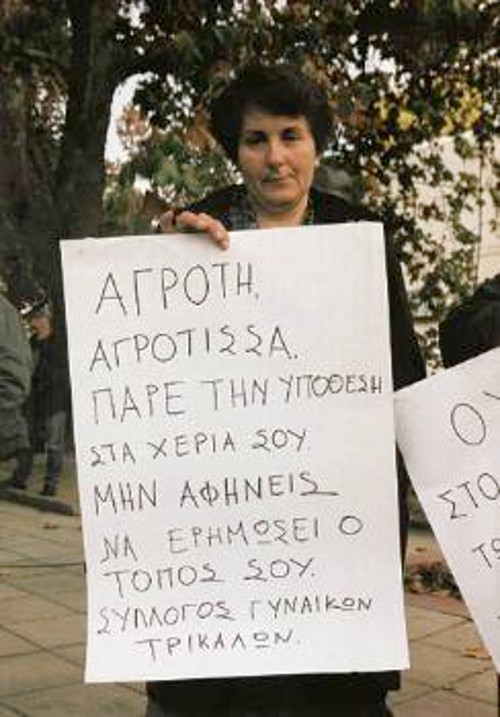 ΑΓΡΟΤΗ,
ΑΓΡΟΤΙΣΣΑ.
ΠΑΡΕ ΤΗΝ ΥΠΟΘΕΣΗ
ΣΤΑ ΧΕΡΙΑ ΣΟΥ.
ΜΗΝ ΑΦΗΝΕΙΣ
ΝΑ ΕΡΗΜΩΣΕΙ Ο
ΤΟΠΟΣ ΣΟΥ.
ΣΥΛΛΟΓΟΣ ΓΥΝΑΙΚΩΝ
ΤΡΙΚΑΛΩΝ.
ΣΤΟ